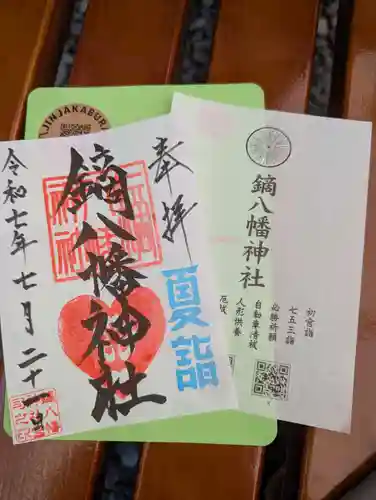 奉拝
鏑八幡神社
夏詣
令和七年七月二十一日
JINJAKABURA
鏑八幡神社
初宮詣
七五三詣
必勝祈願
自動車清祓
人形供養
厄祓